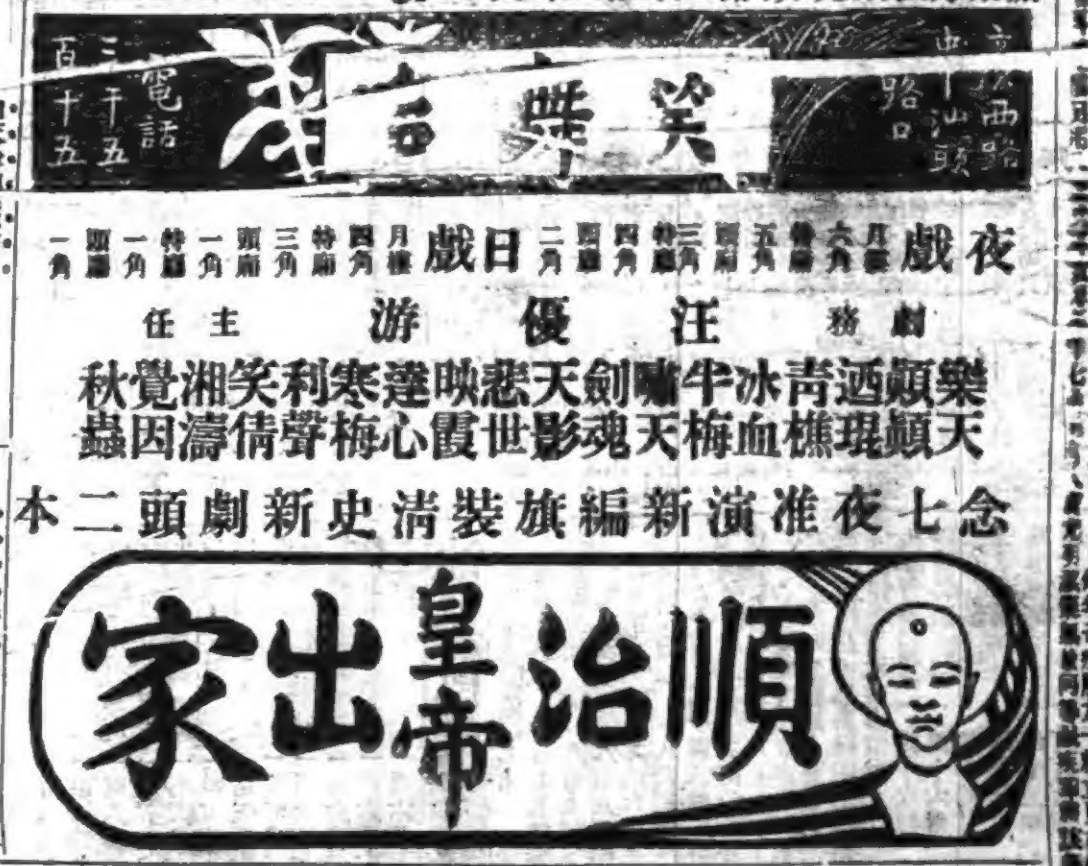 西路
汕頭
路口
笑舞台
電話
三千五
百十五
夜戲 月樓六角 特廂五角 頭廂三角 特廳四角 頭廳二角 日戲 月樓四角 特廂三角 頭廂一角 特廳一角 頭廳一角
劇務 汪優游 主任
樂天 顛顛 迺琨 靑樵 冰血 半梅 嘯天 劍魂 天影 悲世 映霞 達心 寒梅 利聲 笑倩 湘濤 覺因 秋蟲
念七夜准演新編旗裝淸史新劇頭二本
順治皇帝出家